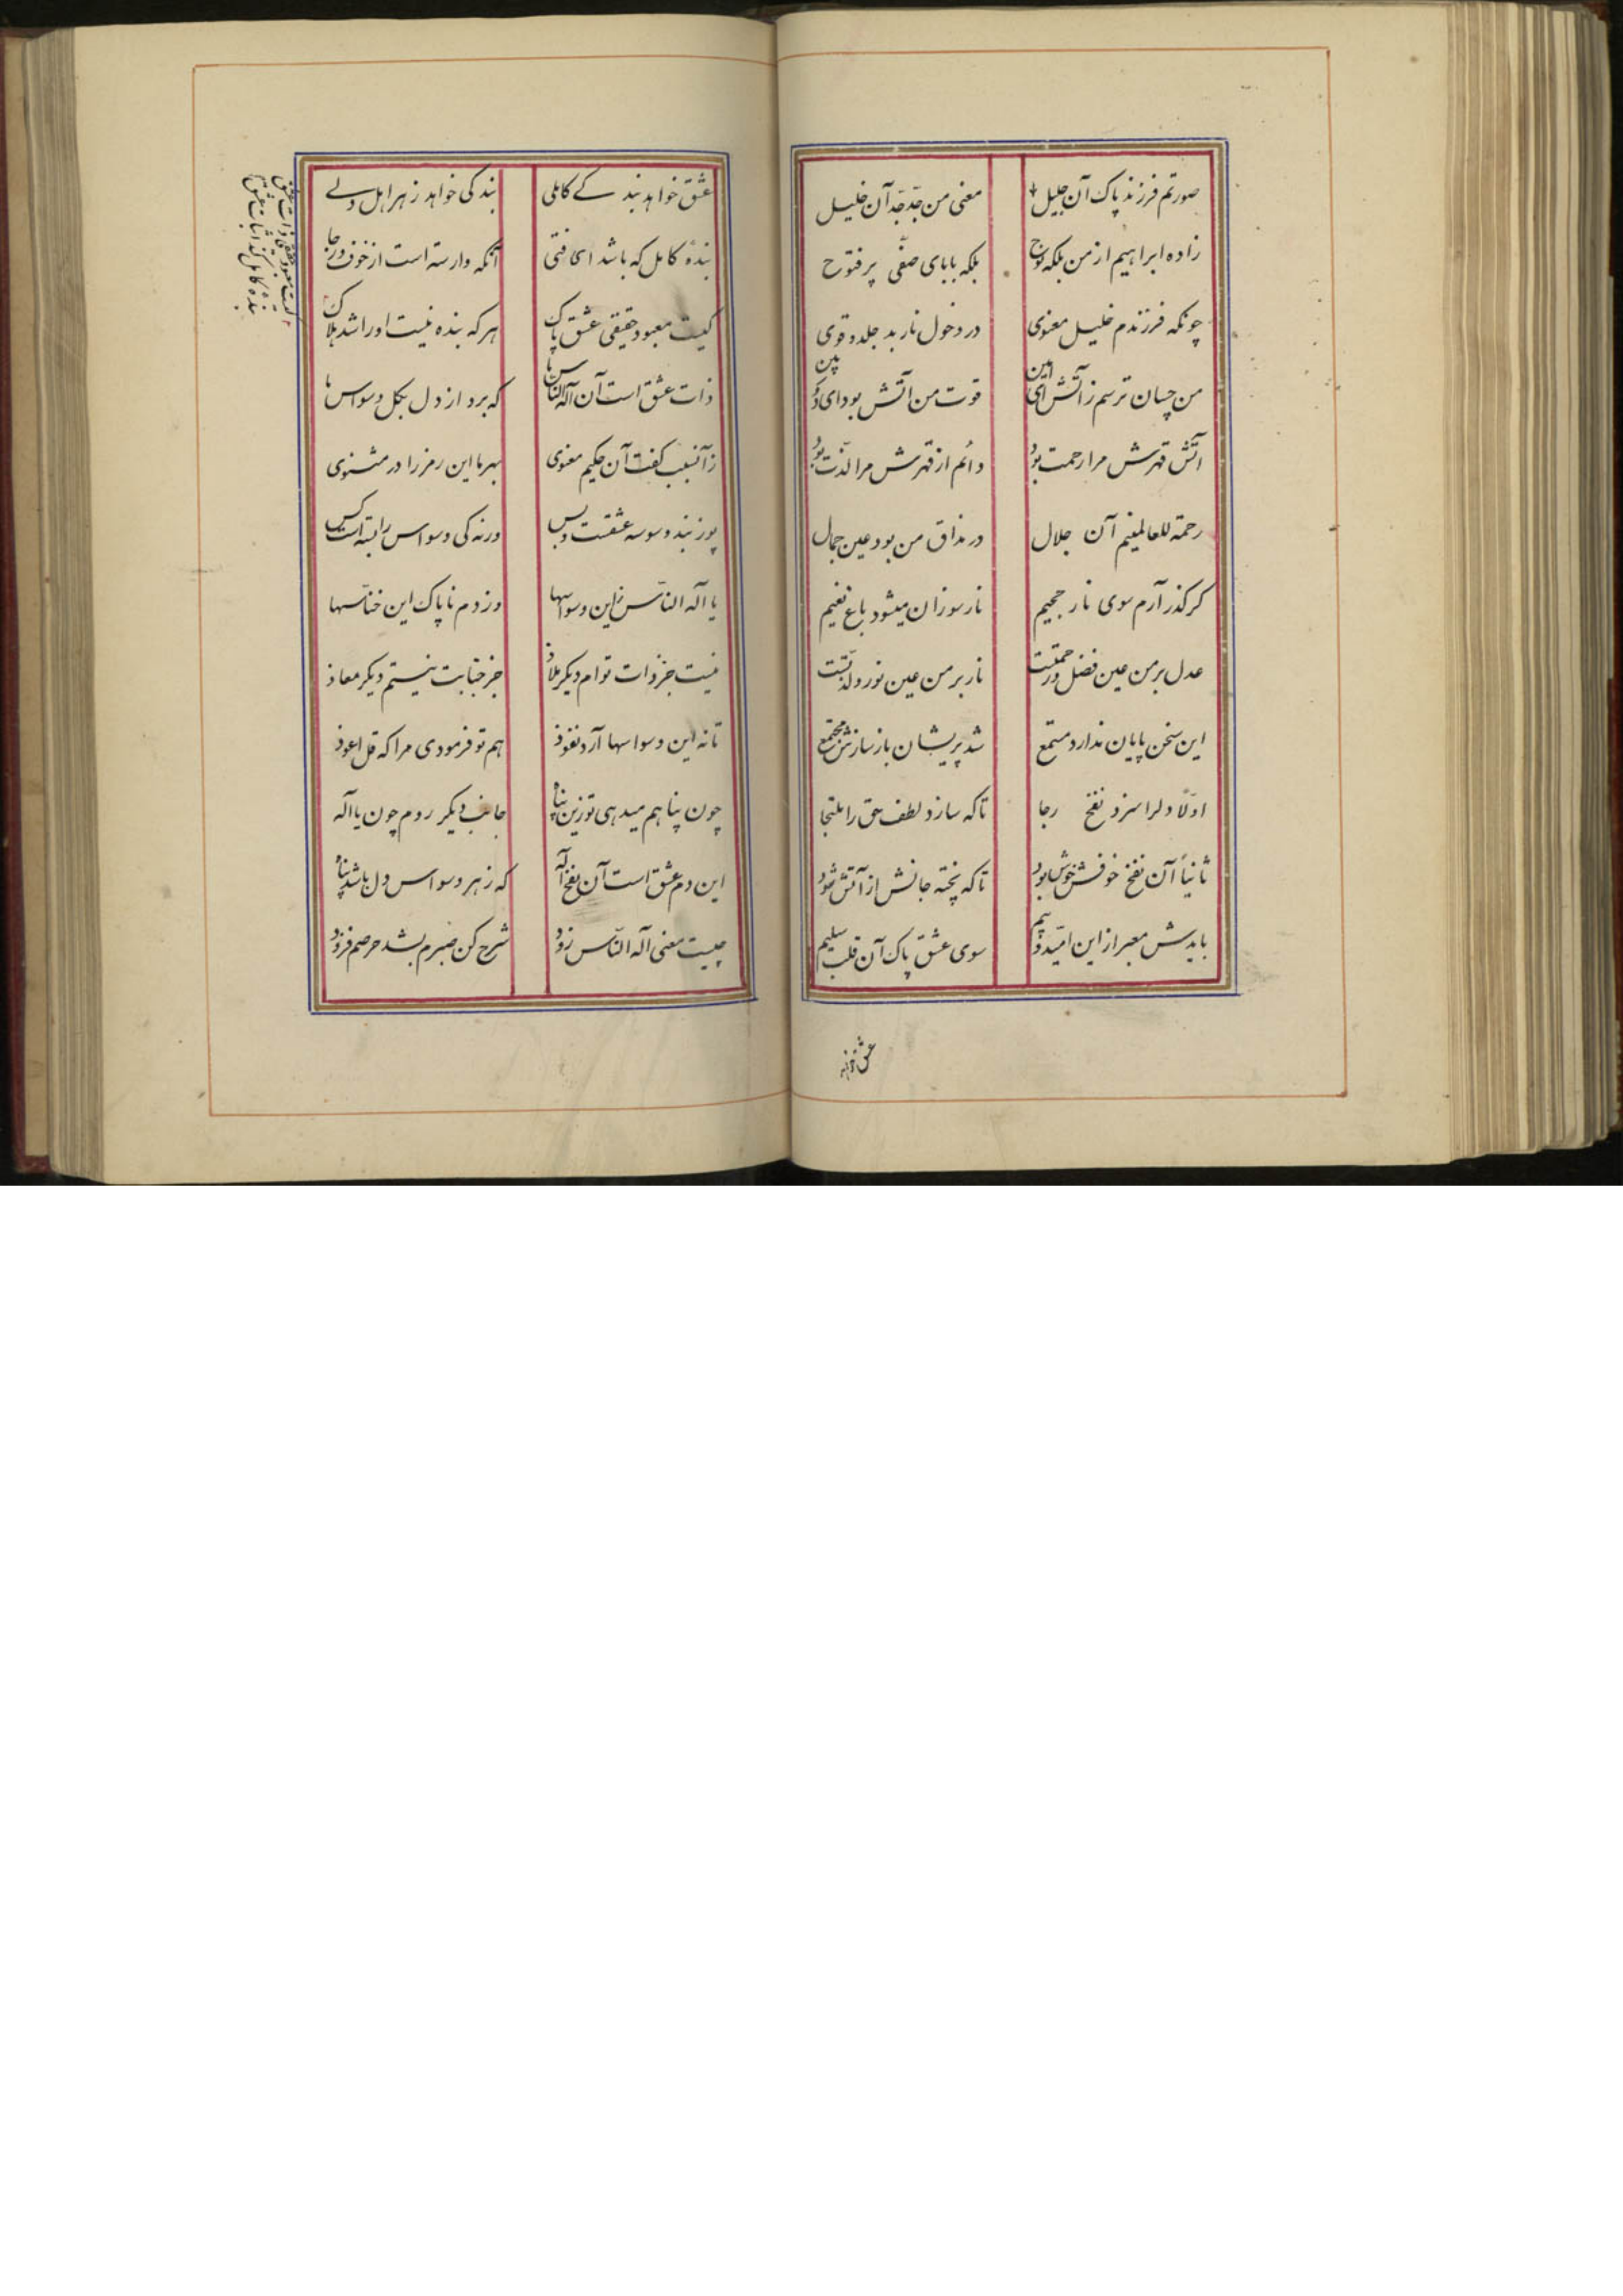 صورتم فرزند پاک آن جلیل معنی من جدّ جدّ آن خلیل
زاده ابراهیم از من بلکه نوح بلکه بابای صفّی پر فتوح
چونکه فرزندم خلیل معنوی در دخول نار بد جلد و قوی
من چسان ترسم ز آتش ای امین قوت من آتش بود ای دوربین
آتش قهرش مرا رحمت بود دائم از قهرش مرا لذّت بود
رحمة للعالمینم آن جلال در مذاق من بود عین جمال
کر کذر آرم سوی نار جحیم نار سوزان میشود باغ نعیم
عدل بر من عین فضل و رحمتست نار بر من عین نور و لذّتست
این سخن پایان ندارد مستمع شد پریشان باز سازش مجتمع
اوّلا دلرا سزد نفخ رجا تا که سازد لطف حق را ملتجا
ثانیاً آن نفخ خوفش خوش بود تا که پخته جانش از آتش شود
بایدش معبر از این امّید و بیم سوی عشق پاک آن قلب سلیم
عشق خواهد
عشق خواهد بند کے کاملی بندکی خواهد ز هر اهل دلے
بندهٔ کامل که باشد ای فتی آنکه وارسته است از خوف و رجا
کیست معبود حقیقی عشق پاک هر که بنده نیست اورا شد هلاک
ذات عشق است آن اله الناس ما که برد از دل بکل وسواس ما
زآنسبب کفت آن حکیم معنوی بهر ما این رمز را در مثنوی
پوزبند وسوسه عشقست و بس ورنه کی وسواس را بسته است کس
یا اله النّاس زین وسواسها وز دم ناپاک این خنّاسها
نیست جز ذات توام دیکر ملاذ جز جنابت نیستم دیکر معاذ
تا نه این وسواسها آرد نفوذ هم تو فرمودی مرا که قل اعوذ
چون پناهم میدهی تو زین پناه جانب دیکر روم چون یا اله
این دم عشق است آن نفخ اله که ز هر وسواس دل باشد پناه
چیست معنی اله النّاس زود شرح کن صبرم بشد حرصم فزود
کیست معبود حقیقی ذات عشق
بنده کامل کند اثبات عشق